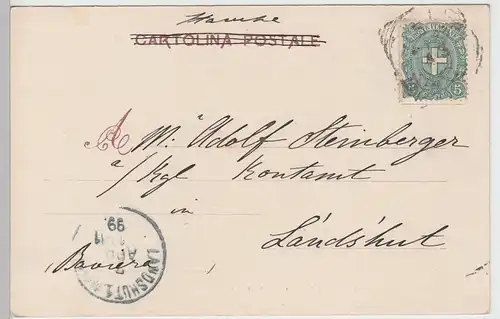 Stampe
CARTOLINA POSTALE
5 5
A M: Adolf Steinberger
a/ Kgl Rentamt
in
Landshut
Baviera
LANDSHUT 1
7
APR
11
99